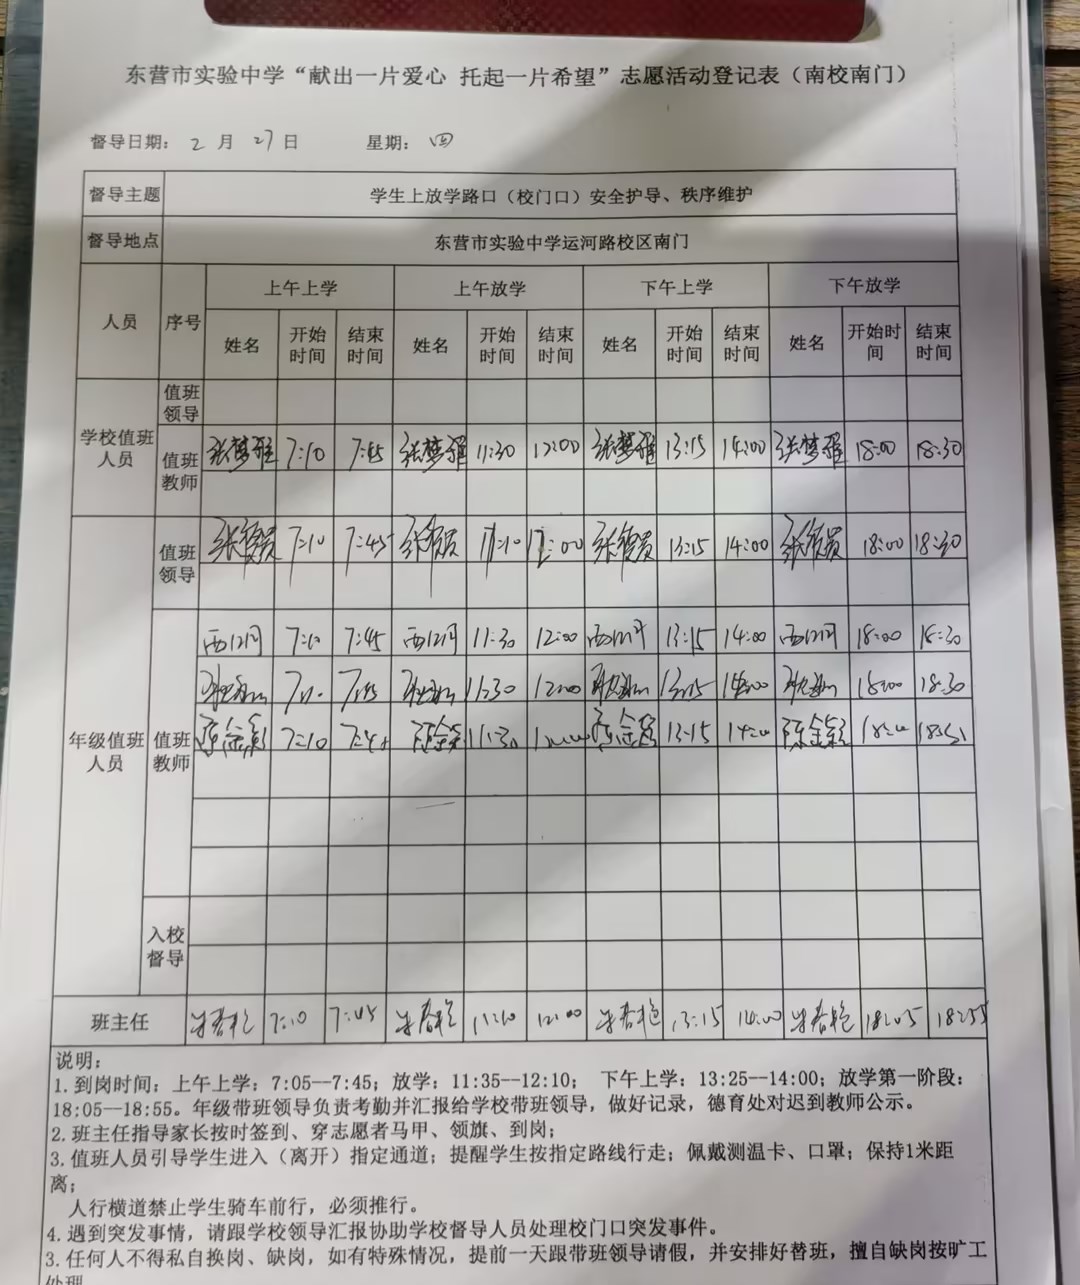 东营市实验中学“献出一片爱心 托起一片希望”志愿活动登记表（南校南门）
督导日期： 2 月 27 日 星期： 四
督导主题 学生上放学路口（校门口）安全护导、秩序维护
督导地点 东营市实验中学运河路校区南门
人员 序号 上午上学 上午放学 下午上学 下午放学
姓名 开始时间 结束时间 姓名 开始时间 结束时间 姓名 开始时间 结束时间 姓名 开始时间 结束时间
学校值班人员 值班领导
值班教师 张梦雅 7:10 7:45 张梦雅 11:30 12:00 张梦雅 13:15 14:00 张梦雅 18:00 18:30
年级值班人员 值班领导 7:10 7:45 11:10 12:00 13:15 14:00 18:00 18:30
值班教师 7:10 7:45 11:30 12:00 13:15 14:00 18:00 18:30
7:10 7:45 11:30 12:00 13:15 14:00 18:00 18:30
7:10 11:30 13:15
入校督导
班主任 7:10 7:45 11:10 12:00 13:15 14:00 18:05 18:55
说明：
1.到岗时间：上午上学：7:05--7:45；放学：11:35--12:10； 下午上学：13:25--14:00；放学第一阶段：
18:05--18:55。年级带班领导负责考勤并汇报给学校带班领导，做好记录，德育处对迟到教师公示。
2.班主任指导家长按时签到、穿志愿者马甲、领旗、到岗；
3.值班人员引导学生进入（离开）指定通道；提醒学生按指定路线行走；佩戴测温卡、口罩；保持1米距
离；
人行横道禁止学生骑车前行，必须推行。
4.遇到突发事情，请跟学校领导汇报协助学校督导人员处理校门口突发事件。
3.任何人不得私自换岗、缺岗，如有特殊情况，提前一天跟带班领导请假，并安排好替班，擅自缺岗按旷工
处理